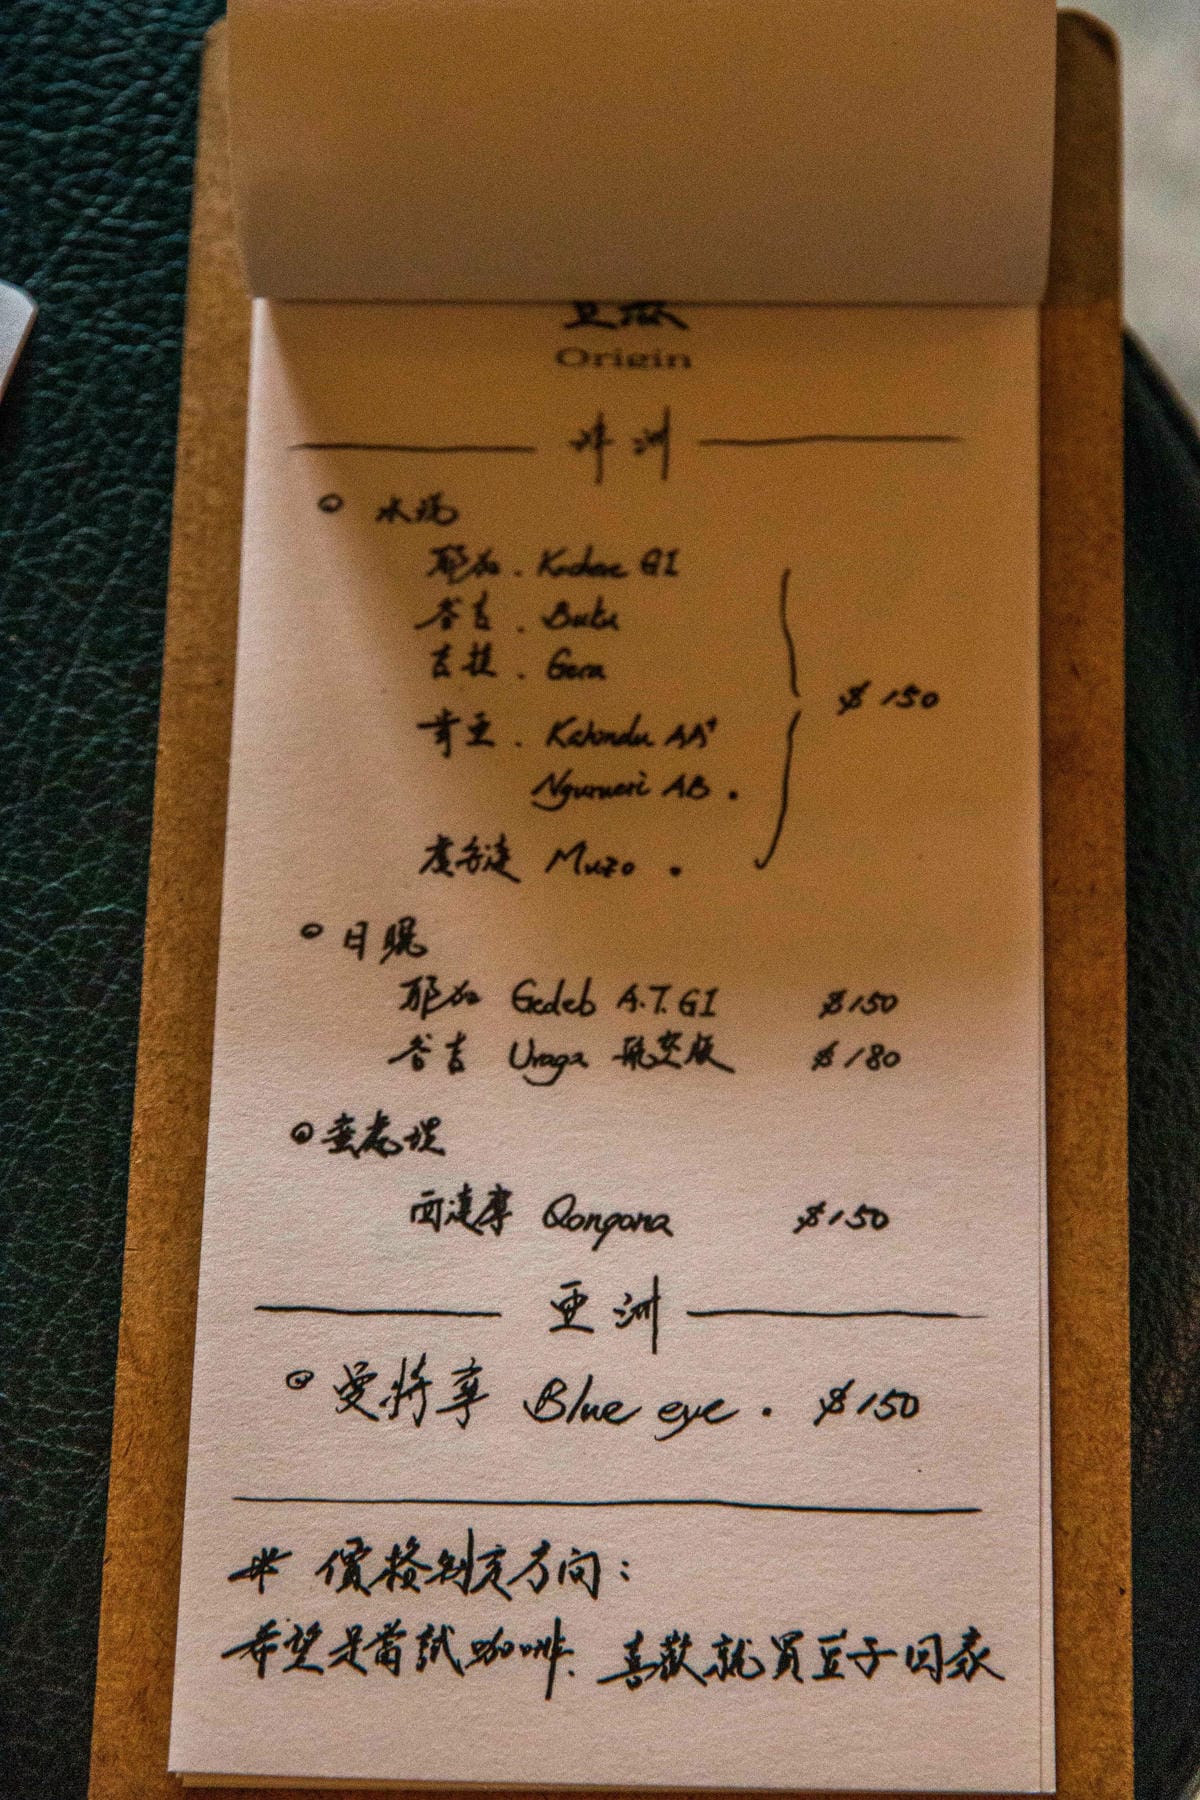 Origin
非洲
水洗
耶加. Kochere G1
谷吉. Buku
吉拉. Gera
肯亞. Kahindu AA+
Ngurueri AB.
盧安達 Muzo.
日曬
耶加 Gedeb A.T. G1 $150
谷吉 Uraga 航空版 $180
$150
蜜處理
西達摩 Qongona $150
亞洲
曼特寧 Blue eye. $150
* 價格制定方向:
希望是嘗試咖啡、喜歡就買豆子回家